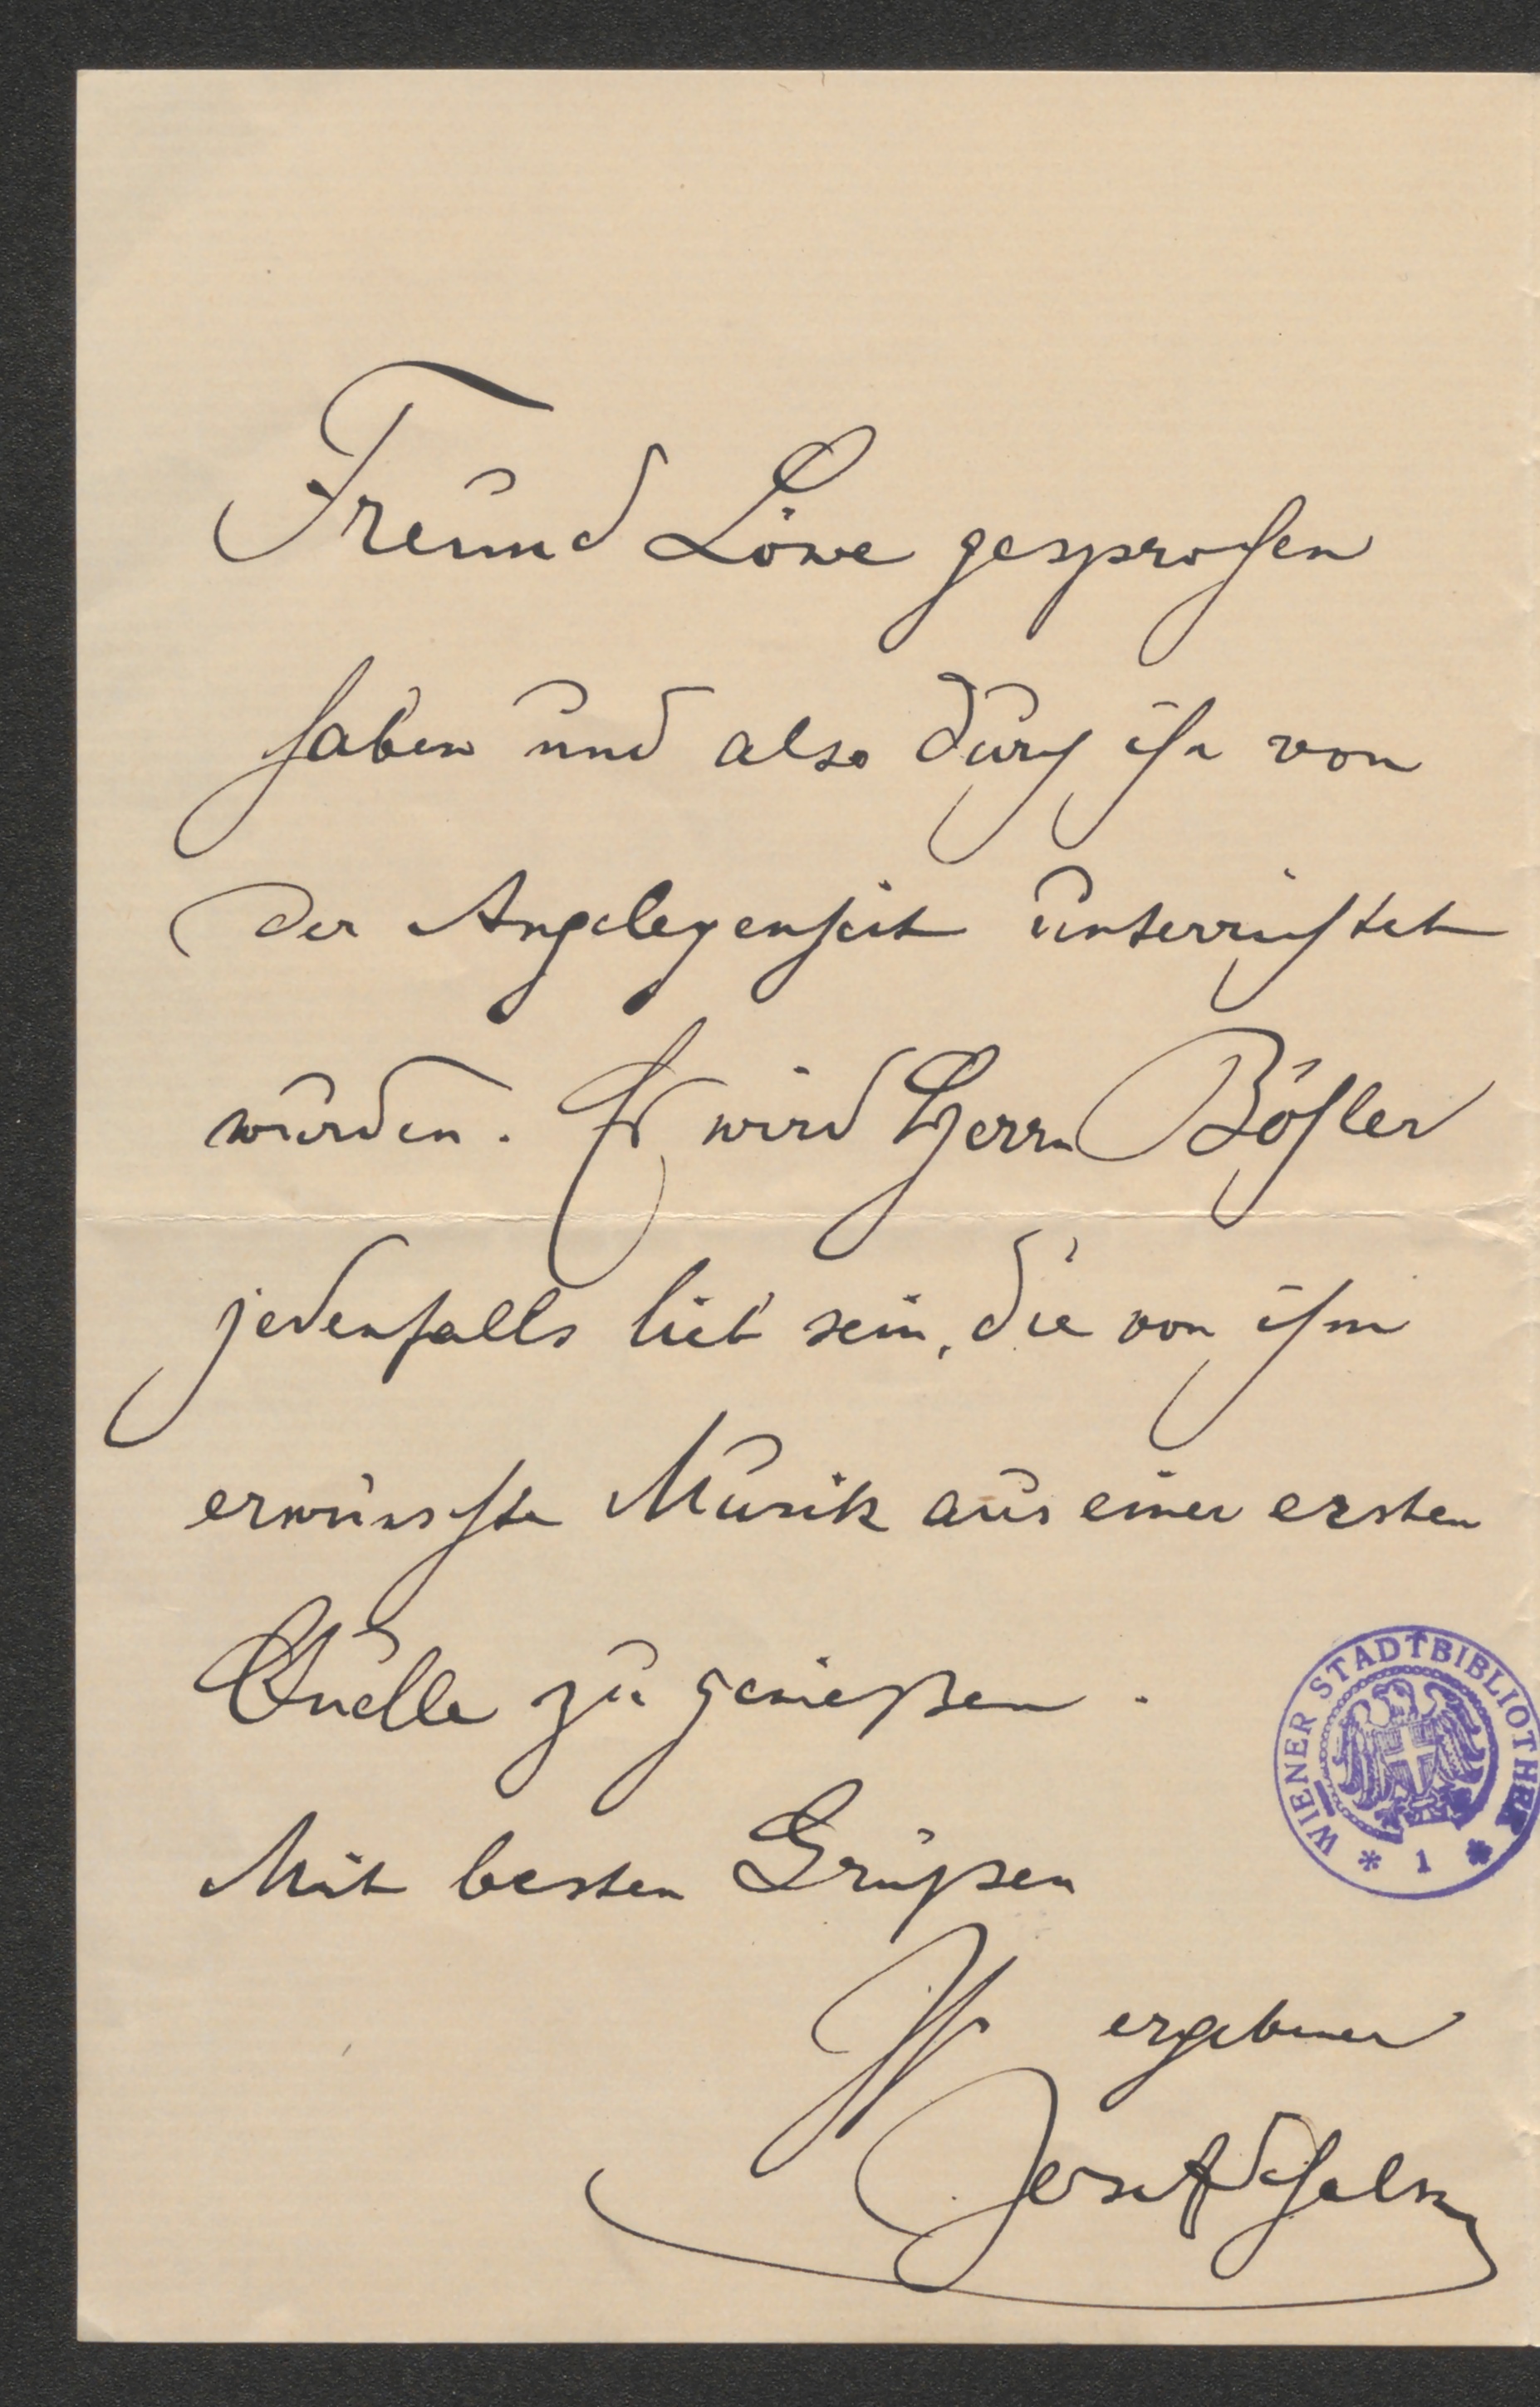 Freund Löwe gesprochen
haben und also durch ihn von
der Angelegenheit unterrichtet
wurden. Es wird Herrn Böhler
jedenfalls lieb sein, die von ihm
erwünschte Musik aus einer ersten
Quelle zu genießen.
Mit besten Grüßen
Ihr ergebener
Josef Schalk
WIENER STADTBIBLIOTHEK
* 1 *